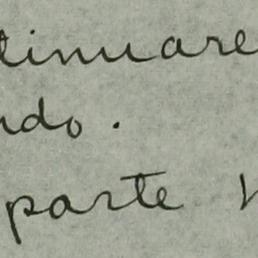 tinuare
ndo.
parte